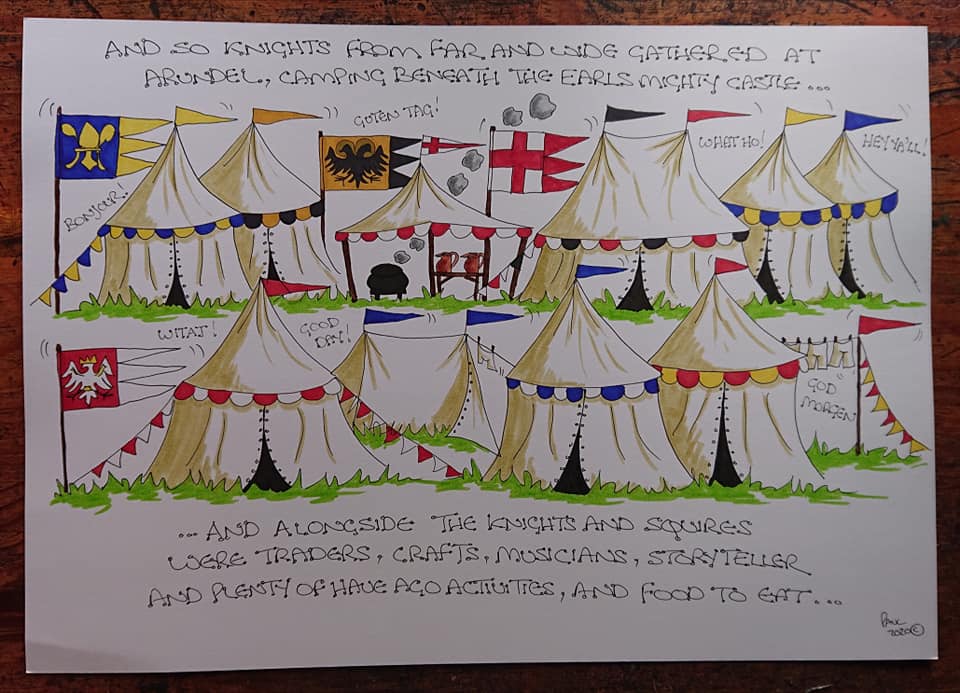 AND SO KNIGHTS FROM FAR AND WIDE GATHERED AT
ARUNDEL, CAMPING BENEATH THE EARLS MIGHTY CASTLE...
GUTEN TAG!
WHAT HO!
HEY YA'LL!
BONJOUR!
WITAJ!
GOOD
DAY!
GOD
MORGEN
...AND ALONGSIDE THE KNIGHTS AND SQUIRES
WERE TRADERS, CRAFTS, MUSICIANS, STORYTELLER
AND PLENTY OF HAVE A GO ACTIVITIES, AND FOOD TO EAT...
2020©